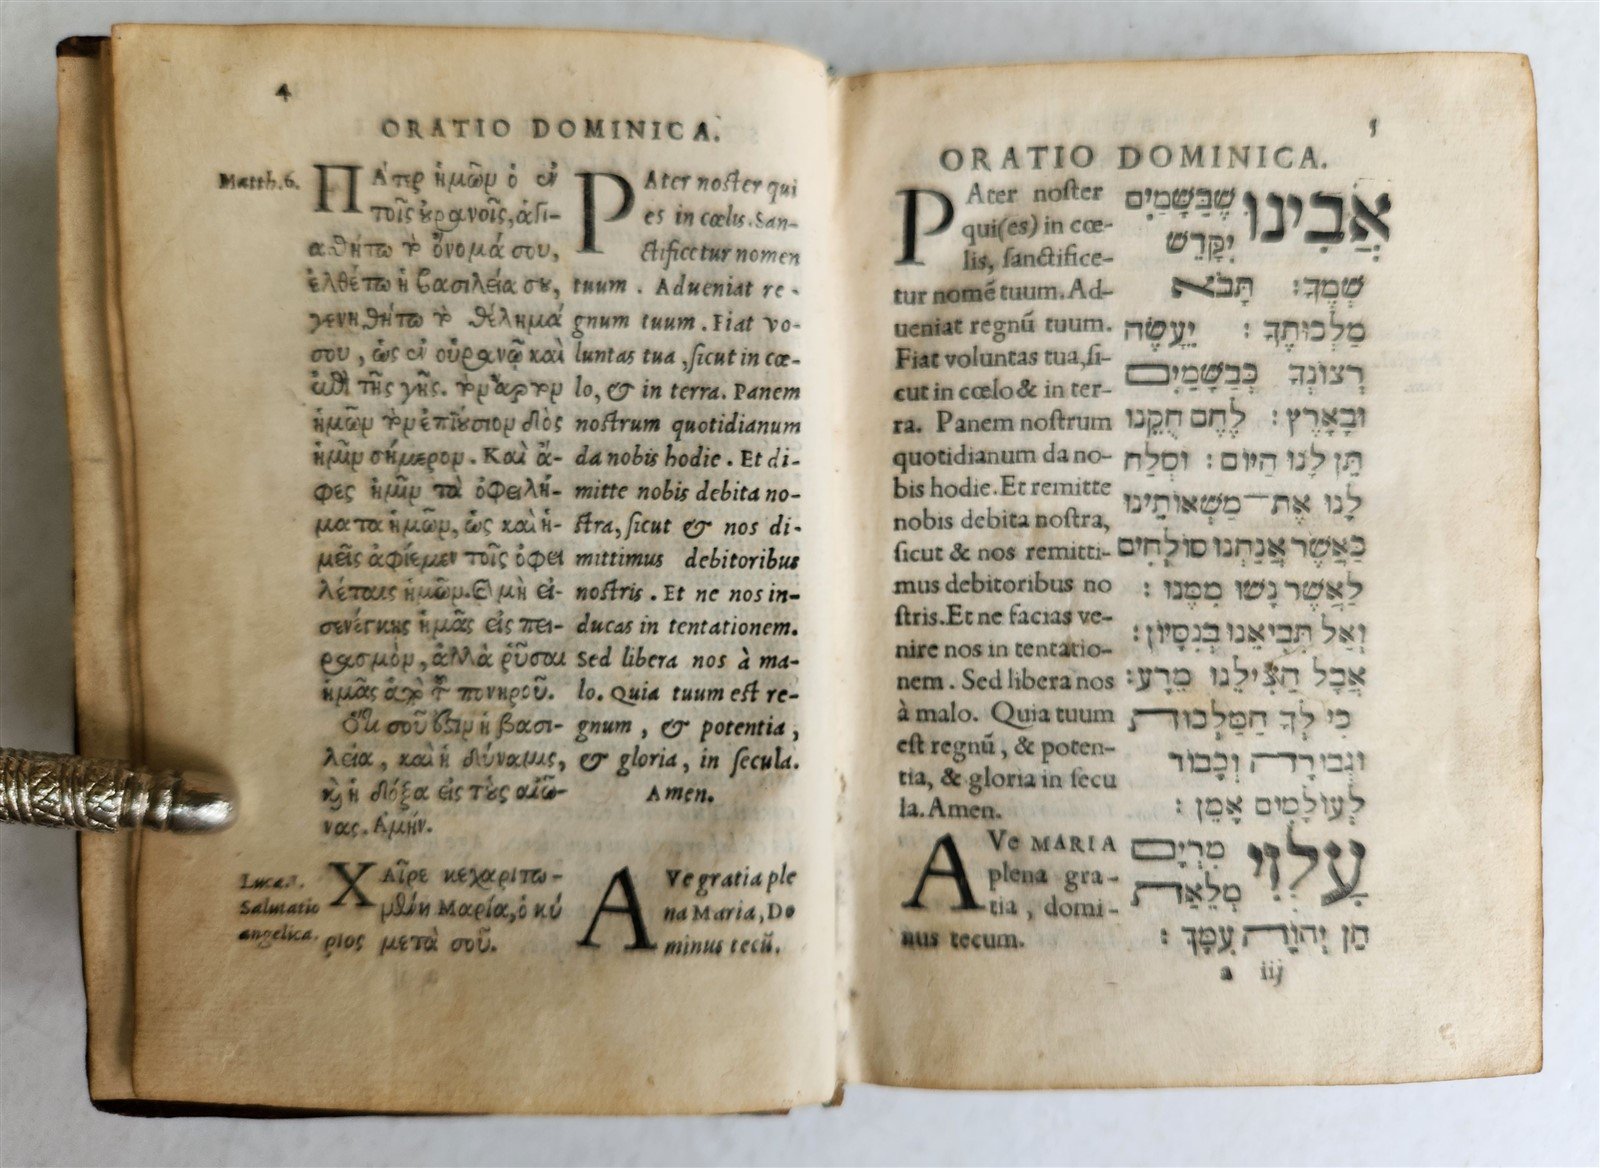 4
ORATIO DOMINICA.
Matth.6.
ΠΑτερ ἡμῶν ὁ ἐν
τοῖς οὐρανοῖς, ἁγι-
αθήτω τὸ ὄνομά σου,
ἐλθέτω ἡ βασιλεία σου,
γενηθήτω τὸ θέλημά
σου, ὡς ἐν οὐρανῷ καὶ
ἐπὶ τῆς γῆς. τὸν ἄρτον
ἡμῶν τὸν ἐπιούσιον δὸς
ἡμῖν σήμερον. Καὶ ἄ-
φες ἡμῖν τὰ ὀφειλή-
ματα ἡμῶν, ὡς καὶ ἡ-
μεῖς ἀφίεμεν τοῖς ὀφει
λέταις ἡμῶν. Καὶ μὴ εἰ-
σενέγκῃς ἡμᾶς εἰς πει-
ρασμὸν, ἀλλὰ ῥῦσαι
ἡμᾶς ἀπὸ τοῦ πονηροῦ.
Ὅτι σοῦ ἐστιν ἡ βασι-
λεία, καὶ ἡ δύναμις,
καὶ ἡ δόξα εἰς τοὺς αἰῶ-
νας. Ἀμήν.
Luca.1.
Salutatio
angelica.
ΧΑῖρε κεχαριτω-
μένη Μαρία, ὁ κύ
ριος μετὰ σοῦ.
PAter noster qui
es in cœlis. San-
ctificetur nomen
tuum. Adueniat re-
gnum tuum. Fiat vo-
luntas tua, sicut in cœ-
lo, & in terra. Panem
nostrum quotidianum
da nobis hodie. Et di-
mitte nobis debita no-
stra, sicut & nos di-
mittimus debitoribus
nostris. Et ne nos in-
ducas in tentationem.
Sed libera nos à ma-
lo. Quia tuum est re-
gnum, & potentia,
& gloria, in secula.
Amen.
AVe gratia ple
na Maria, Do
minus tecũ.
5
ORATIO DOMINICA.
PAter noster
qui(es) in cœ-
lis, sanctifice-
tur nomẽ tuum. Ad-
ueniat regnũ tuum.
Fiat voluntas tua, si-
cut in cœlo & in ter-
ra. Panem nostrum
quotidianum da no-
bis hodie. Et remitte
nobis debita nostra,
sicut & nos remitti-
mus debitoribus no
stris. Et ne facias ve-
nire nos in tentatio-
nem. Sed libera nos
à malo. Quia tuum
est regnũ, & poten-
tia, & gloria in secu
la. Amen.
AVe MARIA
plena gra-
tia, domi-
nus tecum.
אֲבִינוּ שֶׁבַּשָּׁמַיִם
יִקָּדֵשׁ
שְׁמֶךָ: תָּבֹא
מַלְכוּתֶךָ: יֵעָשֶׂה
רְצוֹנְךָ כְּבַשָּׁמַיִם
וּבָאָרֶץ: לֶחֶם חֻקֵּנוּ
תֵּן לָנוּ הַיּוֹם: וּסְלַח
לָנוּ אֶת־מַשְׁאוֹתֵינוּ
כַּאֲשֶׁר אֲנַחְנוּ סוֹלְחִים
לַאֲשֶׁר נָשׁוּ מִמֶּנּוּ:
וְאַל תְּבִיאֵנוּ בְּנִסָּיוֹן:
אֲבָל הַצִּילֵנוּ מֵרָע:
כִּי לְךָ הַמַּלְכוּת
וּגְבוּרָה וְכָבוֹד
לְעוֹלָמִים אָמֵן:
מִרְיָם
מְלֵאַת
חֵן יְהוָֹה עִמָּךְ:
a iij